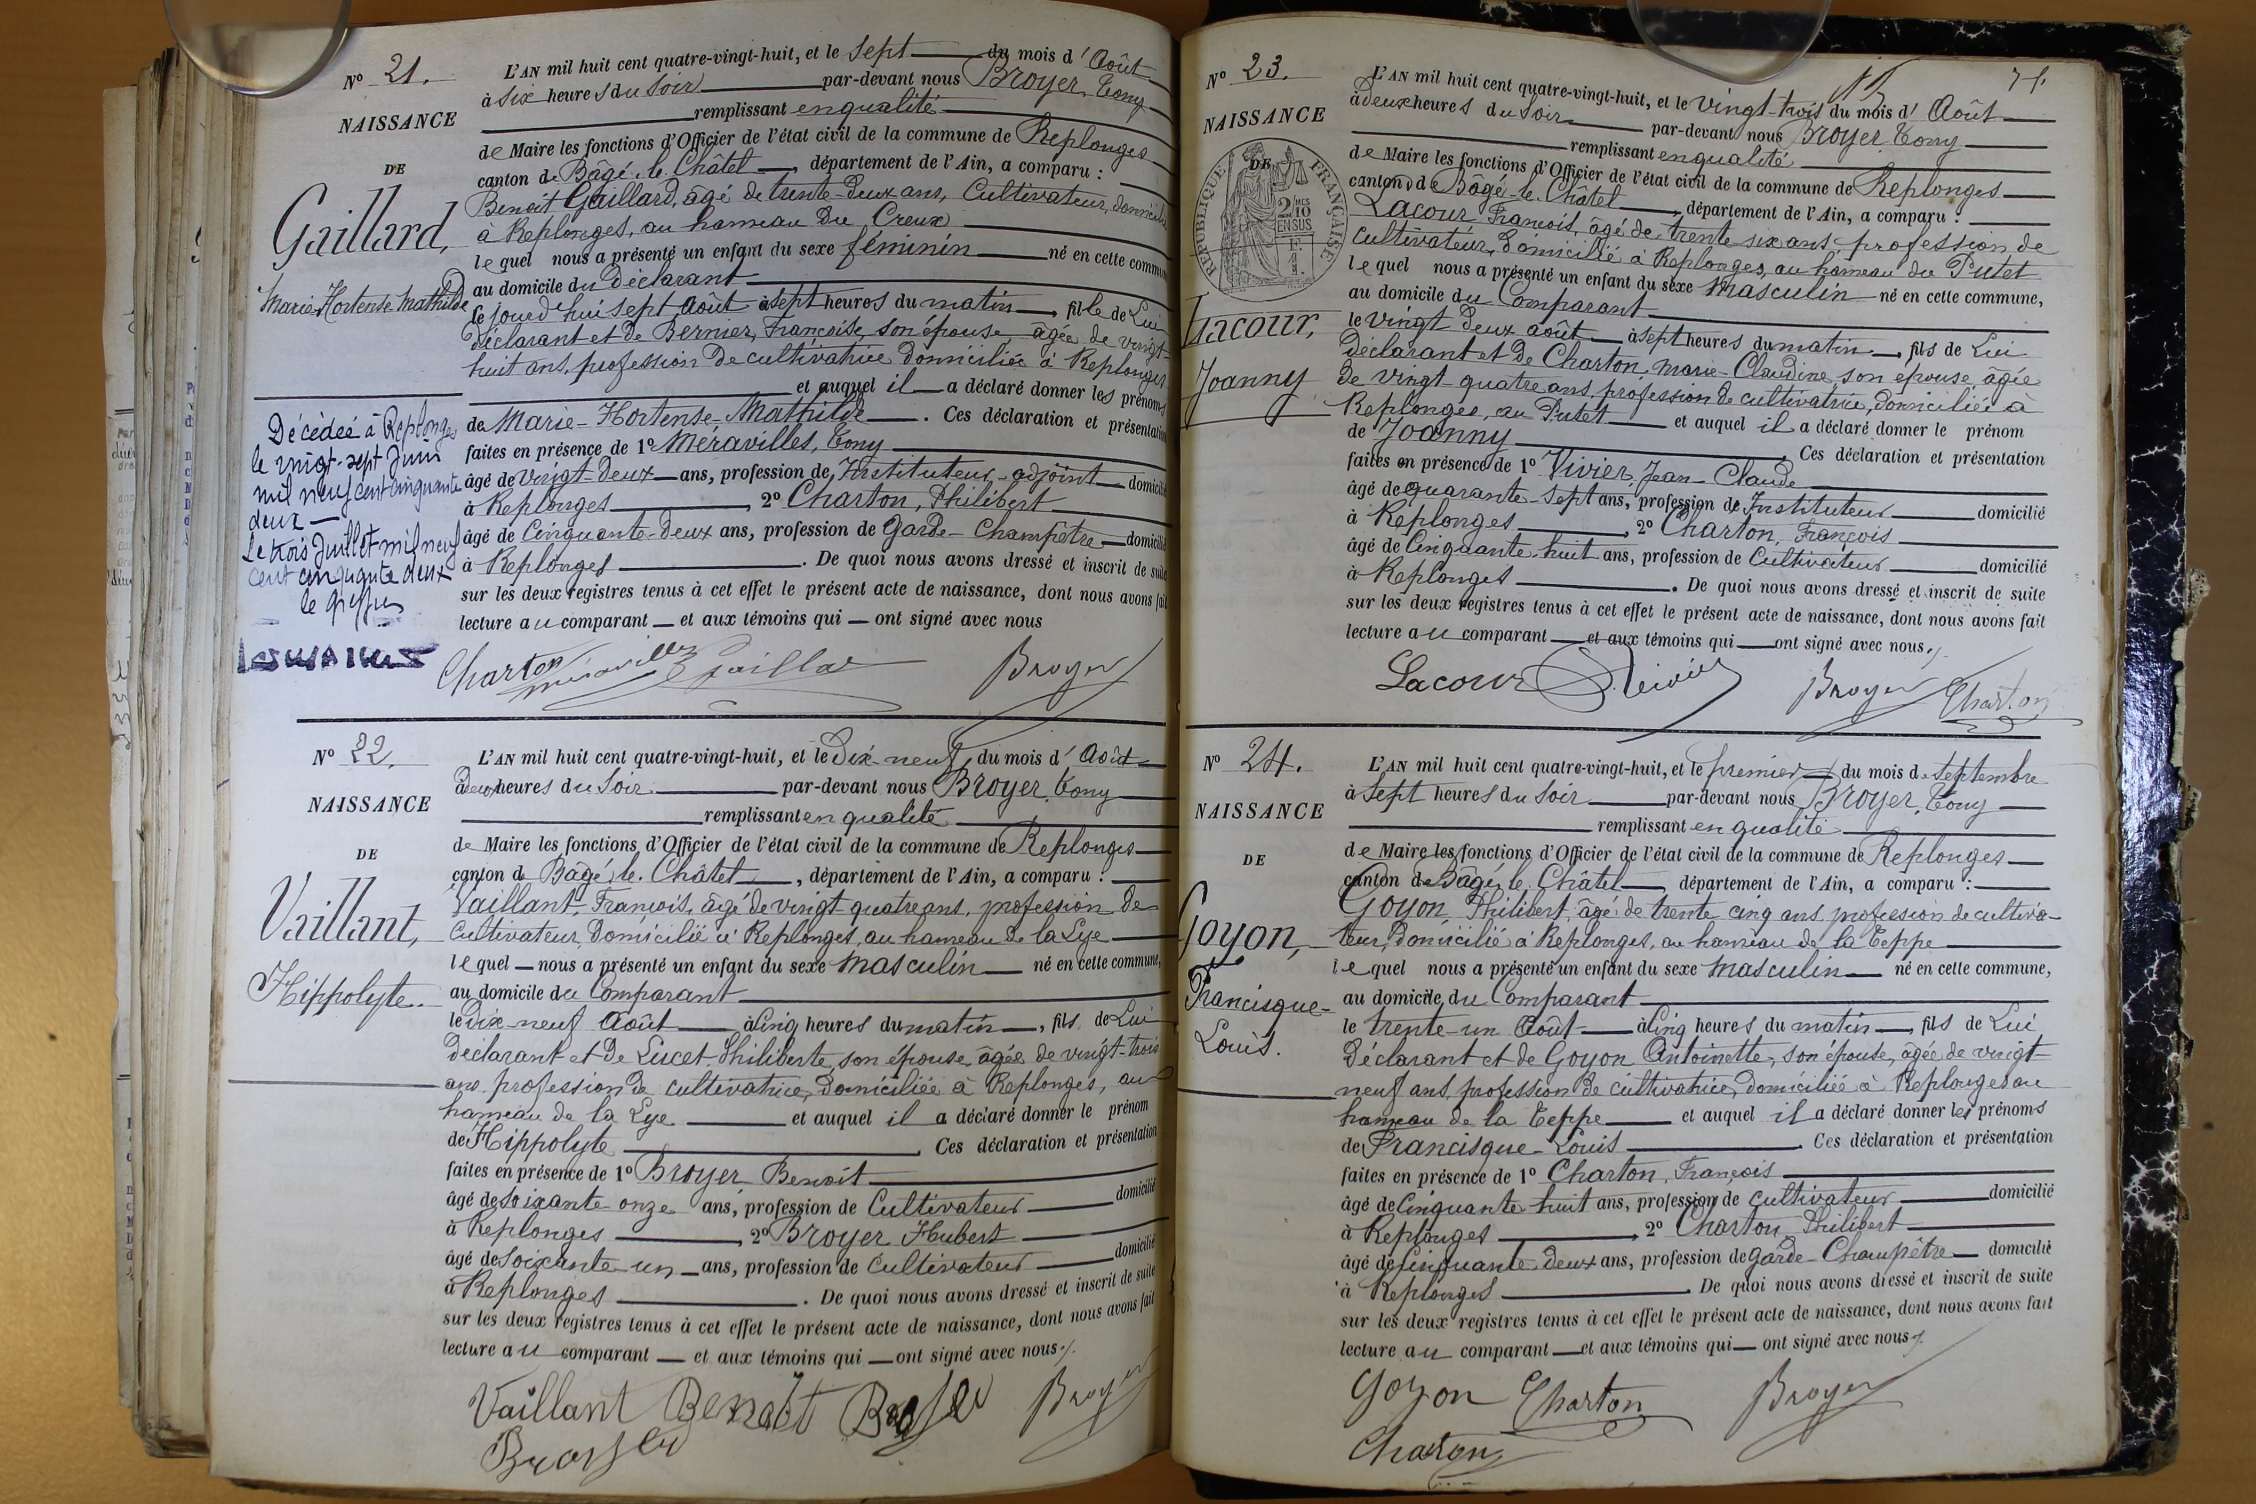 N° 21.
NAISSANCE
DE
Gaillard,
Marie-Hortense-Mathilde
Décédée à Replonges
le vingt-sept Juin
mil neuf cent cinquante
deux —
Le trois Juillet mil neuf
cent cinquante deux
le greffier
L'AN mil huit cent quatre-vingt-huit, et le sept du mois d'Août
à six heures du soir par-devant nous Broyer, Tony
remplissant en qualité
de Maire les fonctions d'Officier de l'état civil de la commune de Replonges
canton de Bâgé-le-Châtel, département de l'Ain, a comparu :
Benoît Gaillard, âgé de trente-deux ans, Cultivateur, domicilié
à Replonges, au hameau du Creux
lequel nous a présenté un enfant du sexe féminin né en cette commune
au domicile du Déclarant
le jourd'hui sept Août à sept heures du matin, fille de Lui
Déclarant et de Bernier, Françoise, son épouse, âgée de vingt-
huit ans, profession de cultivatrice domiciliée à Replonges
et auquel il a déclaré donner les prénoms
de Marie-Hortense-Mathilde. Ces déclaration et présentation
faites en présence de 1° Méravilles, Tony
âgé de vingt-deux ans, profession de Instituteur-adjoint domicilié
à Replonges, 2° Charton, Philibert
âgé de Cinquante-deux ans, profession de Garde-Champêtre domicilié
à Replonges. De quoi nous avons dressé et inscrit de suite
sur les deux registres tenus à cet effet le présent acte de naissance, dont nous avons fait
lecture au comparant et aux témoins qui ont signé avec nous
Charton Méravilles Gaillar Broyer
N° 22.
NAISSANCE
DE
Vaillant,
Hippolyte.
L'AN mil huit cent quatre-vingt-huit, et le Dix-neuf du mois d'Août
à deux heures du soir par-devant nous Broyer, Tony
remplissant en qualité
de Maire les fonctions d'Officier de l'état civil de la commune de Replonges
canton de Bâgé-le-Châtel, département de l'Ain, a comparu :
Vaillant, François, âgé de vingt-quatre ans, profession de
Cultivateur, Domicilié à Replonges, au hameau de la Lye
lequel nous a présenté un enfant du sexe masculin né en cette commune,
au domicile du Comparant
le Dix-neuf Août à Cinq heures du matin, fils de Lui
Déclarant et de Lucet, Philiberte, son épouse, âgée de vingt-trois
ans, profession de cultivatrice, Domiciliée à Replonges, au
hameau de la Lye et auquel il a déclaré donner le prénom
de Hippolyte. Ces déclaration et présentation
faites en présence de 1° Broyer Benoit
âgé de soixante-onze ans, profession de Cultivateur domicilié
à Replonges, 2° Broyer Hubert
âgé de soixante-un ans, profession de Cultivateur domicilié
à Replonges. De quoi nous avons dressé et inscrit de suite
sur les deux registres tenus à cet effet le présent acte de naissance, dont nous avons fait
lecture au comparant et aux témoins qui ont signé avec nous.
Vaillant Benoit Broyer Broyer
Broyer
N° 23.
NAISSANCE
DE
RÉPUBLIQUE FRANÇAISE
2/10 EN SUS
Lacour,
Joanny
L'AN mil huit cent quatre-vingt-huit, et le vingt-trois du mois d'Août
à deux heures du soir par-devant nous Broyer, Tony
remplissant en qualité
de Maire les fonctions d'Officier de l'état civil de la commune de Replonges
canton de Bâgé-le-Châtel, département de l'Ain, a comparu :
Lacour, François, âgé de trente-six ans, profession de
Cultivateur, domicilié à Replonges, au hameau du Putet
lequel nous a présenté un enfant du sexe masculin né en cette commune,
au domicile du Comparant
le vingt-deux août à sept heures du matin, fils de Lui
Déclarant et de Charton, Marie-Claudine, son épouse, âgée
de vingt-quatre ans, profession de cultivatrice, domiciliée à
Replonges, au Putet et auquel il a déclaré donner le prénom
de Joanny. Ces déclaration et présentation
faites en présence de 1° Vivier, Jean-Claude
âgé de quarante-sept ans, profession de Instituteur domicilié
à Replonges, 2° Charton, François
âgé de Cinquante-huit ans, profession de Cultivateur domicilié
à Replonges. De quoi nous avons dressé et inscrit de suite
sur les deux registres tenus à cet effet le présent acte de naissance, dont nous avons fait
lecture au comparant et aux témoins qui ont signé avec nous.
Lacour Vivier Broyer Charton
N° 24.
NAISSANCE
DE
Goyon,
Francisque-
Louis.
L'AN mil huit cent quatre-vingt-huit, et le premier du mois de Septembre
à sept heures du soir par-devant nous Broyer, Tony
remplissant en qualité
de Maire les fonctions d'Officier de l'état civil de la commune de Replonges
canton de Bâgé-le-Châtel, département de l'Ain, a comparu :
Goyon, Philibert, âgé de trente-cinq ans, profession de cultiva-
teur, Domicilié à Replonges, au hameau de la Teppe
lequel nous a présenté un enfant du sexe masculin né en cette commune,
au domicile du Comparant
le trente-un Août à Cinq heures du matin, fils de Lui
Déclarant et de Goyon Antoinette, son épouse, âgée de vingt-
neuf ans, profession de cultivatrice, Domiciliée à Replonges au
hameau de la Teppe et auquel il a déclaré donner les prénoms
de Francisque-Louis. Ces déclaration et présentation
faites en présence de 1° Charton, François
âgé de Cinquante-huit ans, profession de cultivateur domicilié
à Replonges, 2° Charton, Philibert
âgé de Cinquante-deux ans, profession de Garde-Champêtre domicilié
à Replonges. De quoi nous avons dressé et inscrit de suite
sur les deux registres tenus à cet effet le présent acte de naissance, dont nous avons fait
lecture au comparant et aux témoins qui ont signé avec nous.
Goyon Charton Broyer
Charton